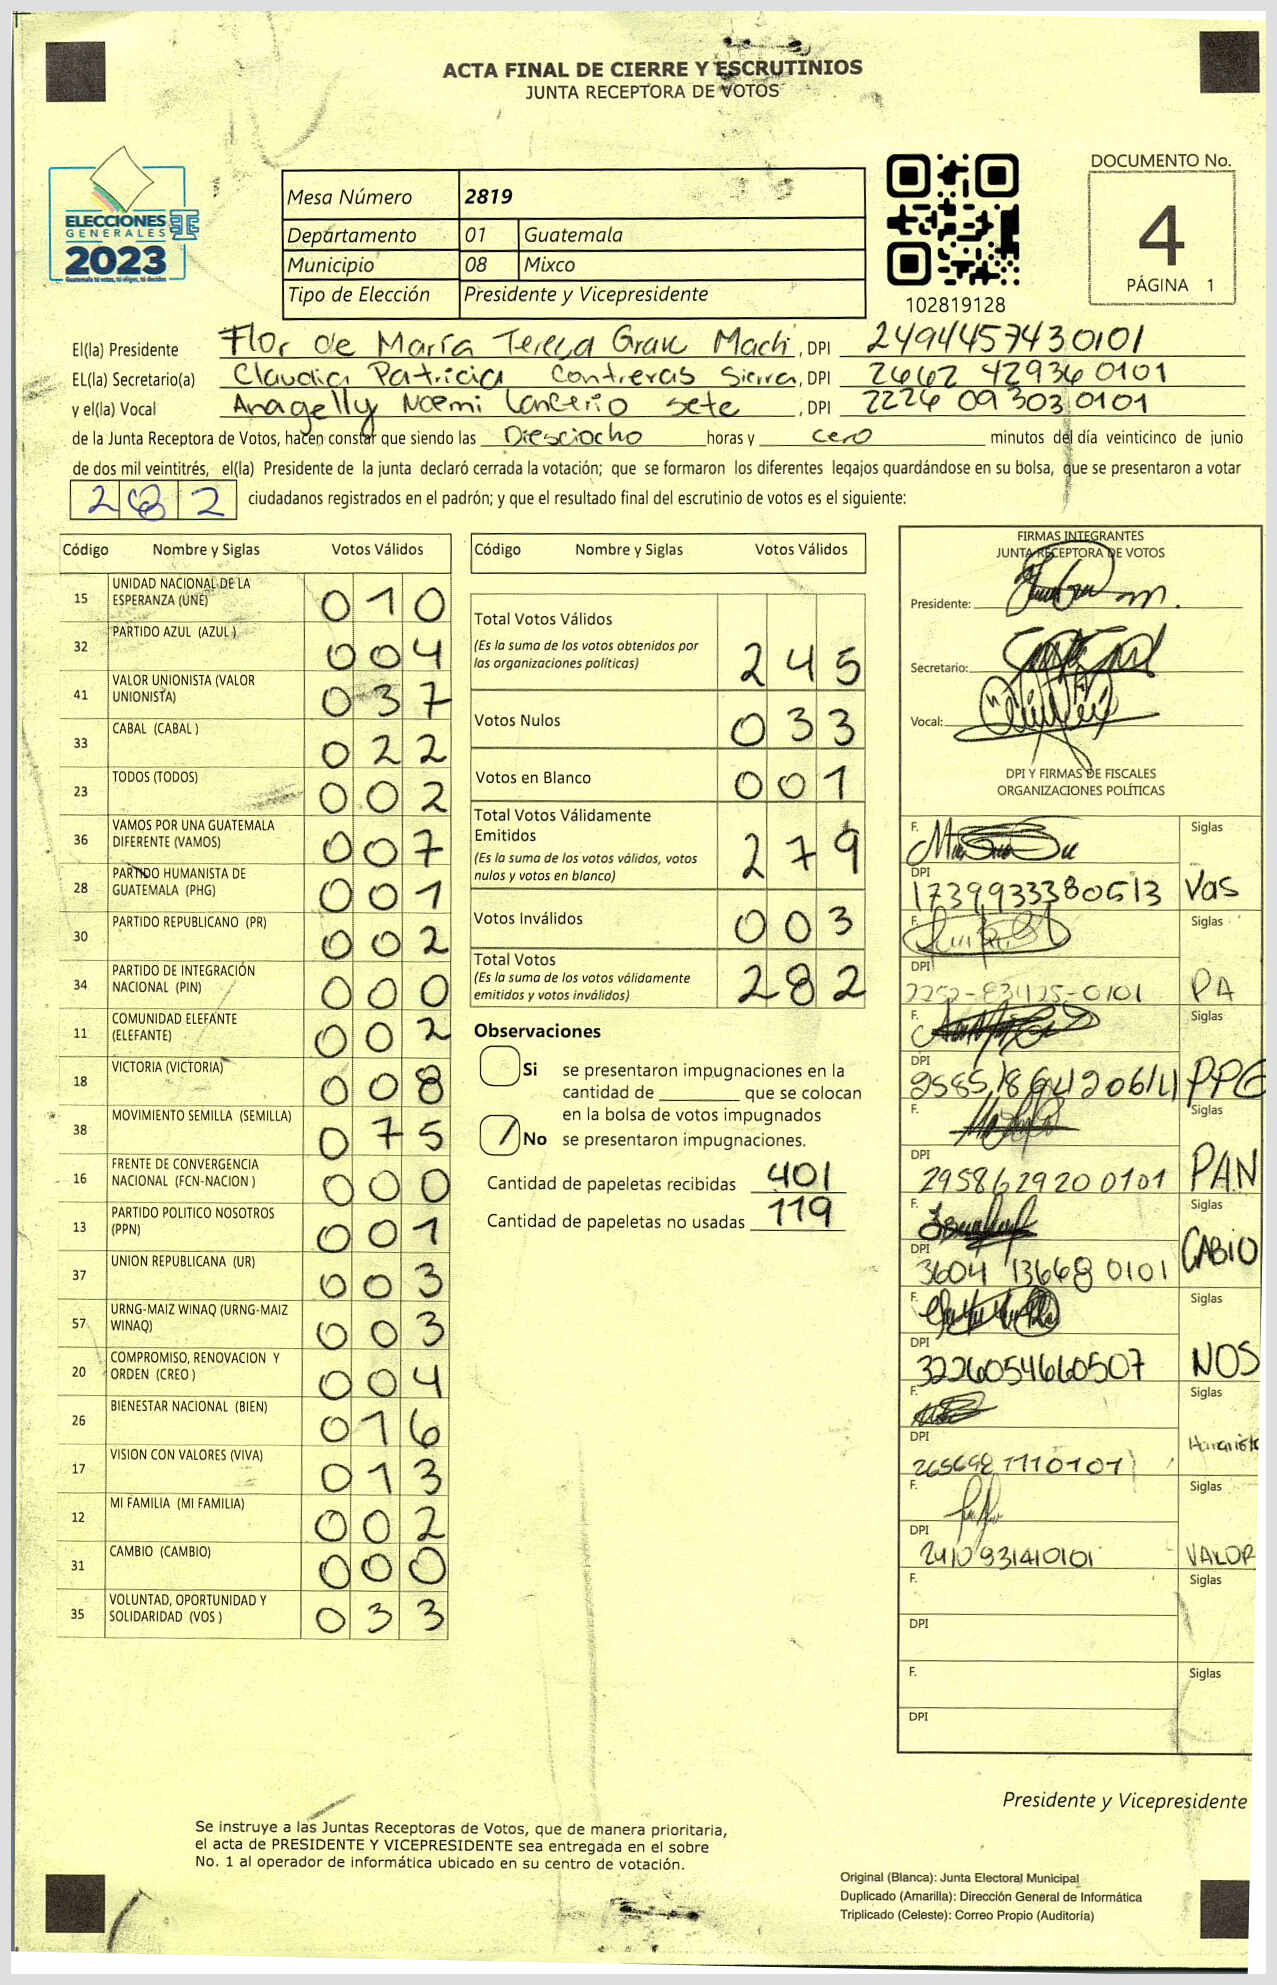 ACTA FINAL DE CIERRE Y ESCRUTINIOS
JUNTA RECEPTORA DE VOTOS
ELECCIONES
GENERALES
2023
Guatemala tú votas, tú eliges, tú decides
Mesa Número 2819
Departamento 01 Guatemala
Municipio 08 Mixco
Tipo de Elección Presidente y Vicepresidente
102819128
DOCUMENTO No.
4
PÁGINA 1
El(la) Presidente Flor de María Teresa Grau Mach, DPI 2494457430101
EL(la) Secretario(a) Claudia Patricia Contreras Sierra, DPI 2662 42936 0101
y el(la) Vocal Anagelly Noemi Lancerio Sete, DPI 2226 09303 0101
de la Junta Receptora de Votos, hacen constar que siendo las Diesciocho horas y cero minutos del día veinticinco de junio
de dos mil veintitrés, el(la) Presidente de la junta declaró cerrada la votación; que se formaron los diferentes legajos guardándose en su bolsa, que se presentaron a votar
282 ciudadanos registrados en el padrón; y que el resultado final del escrutinio de votos es el siguiente:
Código Nombre y Siglas Votos Válidos
15 UNIDAD NACIONAL DE LA ESPERANZA (UNE) 010
32 PARTIDO AZUL (AZUL ) 004
41 VALOR UNIONISTA (VALOR UNIONISTA) 037
33 CABAL (CABAL ) 022
23 TODOS (TODOS) 002
36 VAMOS POR UNA GUATEMALA DIFERENTE (VAMOS) 007
28 PARTIDO HUMANISTA DE GUATEMALA (PHG) 001
30 PARTIDO REPUBLICANO (PR) 002
34 PARTIDO DE INTEGRACIÓN NACIONAL (PIN) 000
11 COMUNIDAD ELEFANTE (ELEFANTE) 002
18 VICTORIA (VICTORIA) 008
38 MOVIMIENTO SEMILLA (SEMILLA) 075
16 FRENTE DE CONVERGENCIA NACIONAL (FCN-NACION ) 000
13 PARTIDO POLITICO NOSOTROS (PPN) 001
37 UNION REPUBLICANA (UR) 003
57 URNG-MAIZ WINAQ (URNG-MAIZ WINAQ) 003
20 COMPROMISO, RENOVACION Y ORDEN (CREO ) 004
26 BIENESTAR NACIONAL (BIEN) 016
17 VISION CON VALORES (VIVA) 013
12 MI FAMILIA (MI FAMILIA) 002
31 CAMBIO (CAMBIO) 000
35 VOLUNTAD, OPORTUNIDAD Y SOLIDARIDAD (VOS ) 033
Código Nombre y Siglas Votos Válidos
Total Votos Válidos
(Es la suma de los votos obtenidos por
las organizaciones políticas) 245
Votos Nulos 033
Votos en Blanco 001
Total Votos Válidamente
Emitidos
(Es la suma de los votos válidos, votos
nulos y votos en blanco) 279
Votos Inválidos 003
Total Votos
(Es la suma de los votos válidamente
emitidos y votos inválidos) 282
Observaciones
Si se presentaron impugnaciones en la
cantidad de ________ que se colocan
en la bolsa de votos impugnados
/ No se presentaron impugnaciones.
Cantidad de papeletas recibidas 401
Cantidad de papeletas no usadas 119
FIRMAS INTEGRANTES
JUNTA RECEPTORA DE VOTOS
Presidente:
Secretario:
Vocal:
DPI Y FIRMAS DE FISCALES
ORGANIZACIONES POLÍTICAS
F. Siglas
DPI 1739933380513 Vas
F. Siglas
DPI 2252-83425-0101 PA
F. Siglas
DPI PPG
F. Siglas
DPI 295862920 0101 PAN
F. Siglas
DPI 3604 13668 0101 CABIO
F. Siglas
DPI 3226054660507 NOS
F. Siglas
DPI
F. Siglas
DPI 2410931410101 VALOR
F. Siglas
DPI
F. Siglas
DPI
Presidente y Vicepresidente
Se instruye a las Juntas Receptoras de Votos, que de manera prioritaria,
el acta de PRESIDENTE Y VICEPRESIDENTE sea entregada en el sobre
No. 1 al operador de informática ubicado en su centro de votación.
Original (Blanca): Junta Electoral Municipal
Duplicado (Amarilla): Dirección General de Informática
Triplicado (Celeste): Correo Propio (Auditoria)